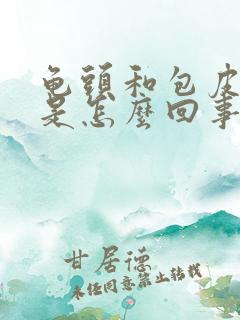 龟頭和包皮
是怎麼回事
甘居德
未经同意禁止转载